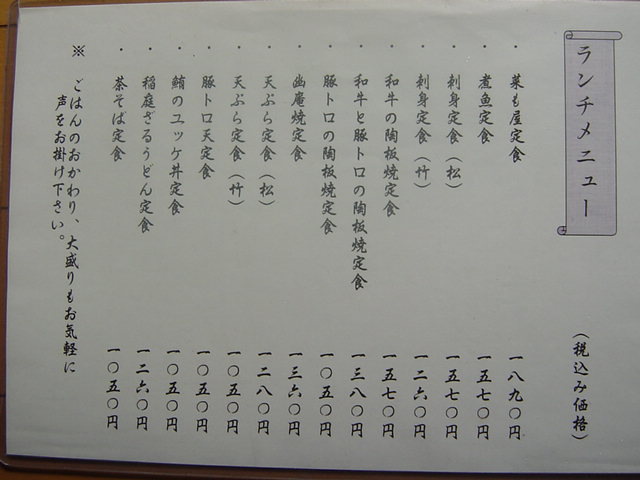 ランチメニュー
(税込み価格)
・菜も屋定食 一八九〇円
・煮魚定食 一五七〇円
・刺身定食(松) 一五七〇円
・刺身定食(竹) 一二六〇円
・和牛の陶板焼定食 一五七〇円
・和牛と豚トロの陶板焼定食 一三八〇円
・豚トロの陶板焼定食 一〇五〇円
・幽庵焼定食 一三六〇円
・天ぷら定食(松) 一二八〇円
・天ぷら定食(竹) 一〇五〇円
・豚トロ天定食 一〇五〇円
・鮪のユッケ丼定食 一〇五〇円
・稲庭ざるうどん定食 一二六〇円
・茶そば定食 一〇五〇円
※ ごはんのおかわり、大盛りもお気軽に
声をお掛け下さい。